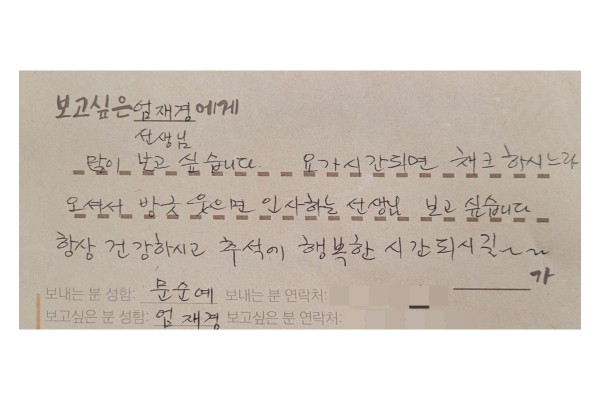 보고싶은 엄재경에게
선생님
많이 보고 싶습니다. 요가시간되면 채크하시느라
오셔서 방긋 웃으면 인사하는 선생님 보고 싶습니다
항상 건강하시고 추석에 행복한 시간되시길~~
가
보내는 분 성함: 문순예 보내는 분 연락처:
보고싶은 분 성함: 엄재경 보고싶은 분 연락처: